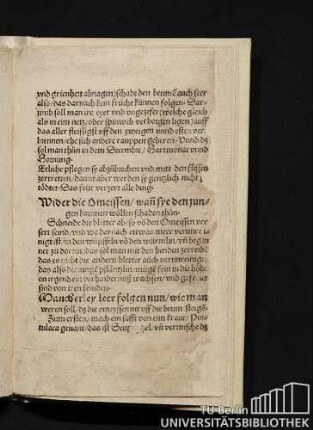 vnd grienheit abnagen) schaden den beumē auch seer
also / das darnach kein frücht künnen folgen. Dar-
umb soll man ire eyer vnd vngezifer (welche gleich
als in eim netz / oder spinweb verborgen ligen) auff
das aller fleissigst vff den zweigen vnnd esten ver-
brennen / ehe sich andere rauppen geberen. Vnnd dz
sol man thůn in dem Decembri / Hartmonat vnnd
Hornung.
Etliche pflegen sie abzůbrechen vnd mitt den füssen
zertretten / damit aber werden sie gentzlich nicht
tödtet. Das feür verzert alle ding.
Wider die Omeissen / wañ sye den jun-
gen baumen wöllen schaden thůn.
Schneide die bletter ab / so võ den Omeissen ver
sert seind / vnd wa darnach etwas meer
ist / in den die würmlin / vñ
ner zů dorren / das sol man mit den henden
das es nicht die andern bletter auch verunreinige /
das also die jungē pflãtzlin / mügē fein in die höhe
on verhinderniß wachsen / vnd
sind von iren feinden.
Mancherley leer folgen nun / wie man
weren soll / dz die omeissen nit vff die beum steigē.
Zum ersten / mach ein safft von eim kraut / Por-
tulaca genant / das ist vñ vermische dz
TU Berlin
UNIVERSITÄTSBIBLIOTHEK